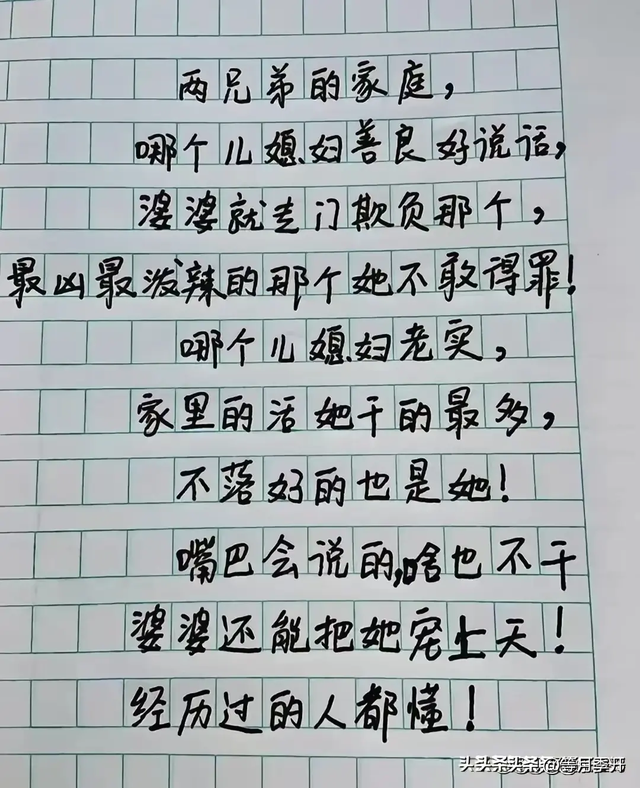 两兄弟的家庭，
哪个儿媳妇善良好说话，
婆婆就专门欺负那个，
最凶最泼辣的那个她不敢得罪！
哪个儿媳妇老实，
家里的活她干的最多，
不落好的也是她！
嘴巴会说的，啥也不干
婆婆还能把她宠上天！
经历过的人都懂！